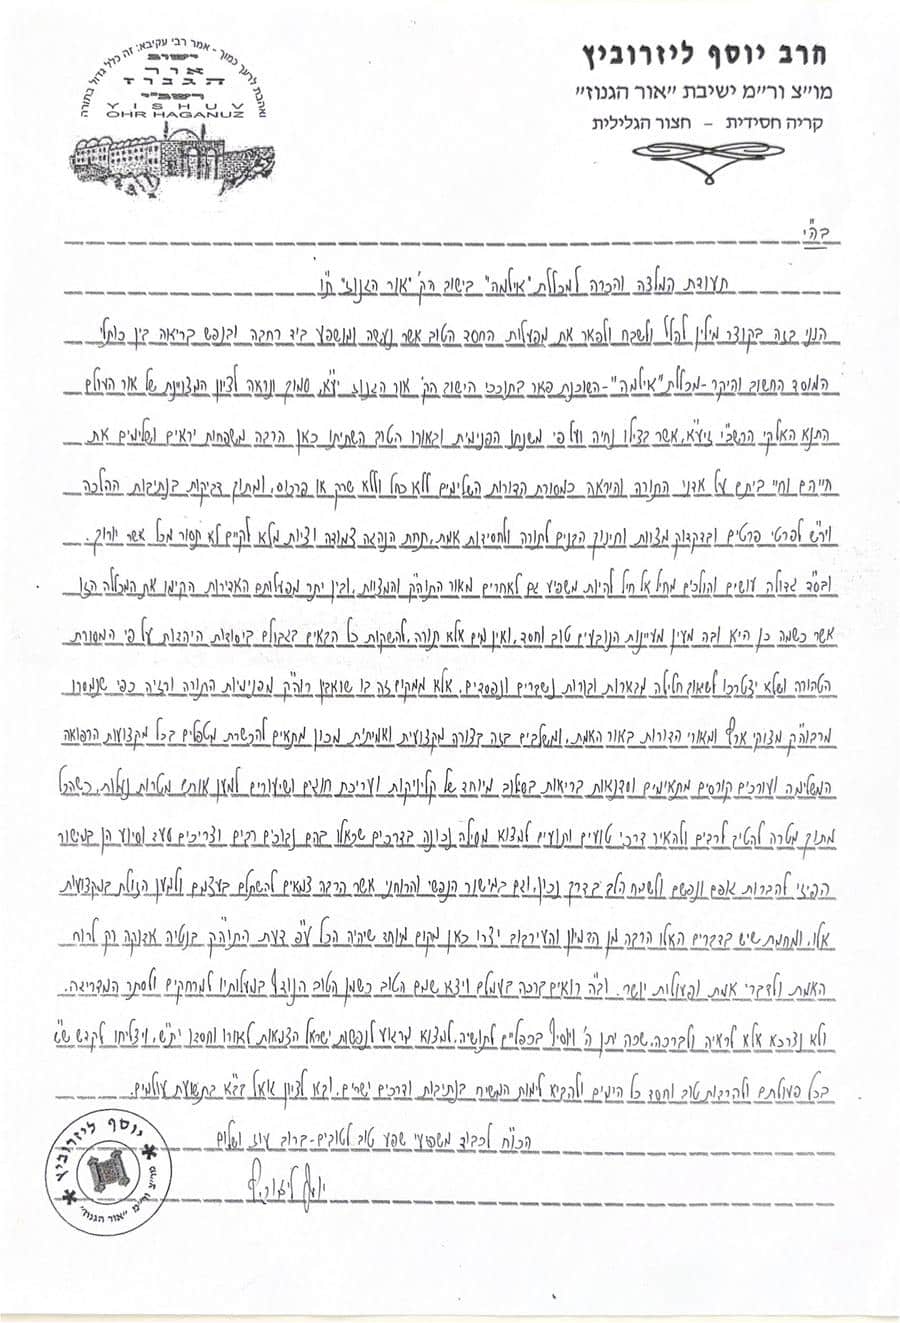 חרב יוסף ליזרוביץ
מו״צ ור״מ ישיבת ״אור הגנוז״
קריה חסידית – חצור הגלילית
ואהבת לרעך כמוך - אמר רבי עקיבא: זה כלל גדול בתורה
ישוב
אור
הגנוז
רשב״י
YISHUV
OHR HAGANUZ
בה״י
תעודת המלצה והכרה למכללת "אילמה" בישוב הק' "אור הגנוז" ת"ו
הנני בזה בקוצר מילין להלל ולשבח ולפאר את מפעלות החסד הטוב אשר נעשה ומושפע ביד רחבה ובנפש בריאה בין כותלי
המוסד החשוב והיקר - מכללת "אילמה" - השוכנת פאר בתוככי הישוב הק' אור הגנוז יע"א, סמוך ונראה לציון המצויינת של אור העולם
התנא האלקי הרשב"י זיע"א, אשר בצילו נחיה ועל פי משנתו הפנימית ובאורו הטוב השתיתו כאן הרבה משפחות יראים ושלימים את
חייהם וחיי ביתם על אדני התורה והיראה כמסורת הדורות השלימים ללא כחל וללא שרק או פרכוס, ומתוך דביקות בנתיבות ההלכה
וירא"ש לפרטי פרטים ובדקדוק מצוות וחינוך הבנים לתורה ולחסידות אמת, תחת הנהגה צמודה וציות מלא לקיים לא תסור מכל אשר יורוך.
ובס"ד גדולה עושים והולכים מחיל אל חיל להיות משפיע גם לאחרים מאור התוה"ק והמצוות, ובין יתר מפעלותם האדירות הקימו את המכללה הזו
אשר כשמה כן היא ובה מעין מעיינות הנובעים טוב וחסד, ואין מים אלא תורה, להשקות כל הבאים בגבולם ביסודות היהדות על פי המסורת
הטהורה ושלא יצטרכו לשאוב חלילה מבארות ובורות נשברים ונפסדים, אלא ממקום זה בו שואבין רוה"ק מפנימיות התורה ורזיה כפי שנמסרו
מרבוה"ק מצוקי ארץ ומאורי הדורות באור האמת, ומשלבים בזה בצורה מקצועית ואמיתית מכון מתאים להכשרת מטפלים בכל מקצועות הרפואה
המשלימה ועורכים קורסים מתאימים וסדנאות בריאות בשילוב מיוחד של קליניקות ועריכת חוגים ושיעורים למען אותם מטרות נעלות, כשהכל
מתוך מטרה להטיב לרבים ולהאיר דרכי טועים ותועים למצוא מסילה נכונה בדרכים שכאלו בהם נבוכים רבים וצריכים סעד וסיוע הן במישור
הפיזי להברות גופם ונפשם ולשמח הלב בדרך נכון, וגם במישור הנפשי והרוחני אשר הרבה צמאים להשתלם בעצמם ולמען הזולת במקצועות
אלו, ומחמת שיש בדברים האלו הרבה מן הדמיון והעירבוב יצרו כאן מקום מיוחד שיהיה הכל ע"פ דעת התוה"ק בנטיה אדוקה רק לרוח
האמת ולדברי אמת ופעולות יושר. וב"ה רואים ברכה בעמלם ויצא שמם הטוב כשמן הטוב הנודף במעלותיו למרחקים ולסתר המדריגה.
ולא נצרכא אלא לראיה ולברכה, שכה יתן ה' ויוסיף בכפליים לתושיה, למצוא מרגוע לנפשות ישראל הצמאות לאורו וחסדו ית"ש, ויצליחו לקדש ש"ש
בכל פעולתם ולהרבות טוב וחסד כל הימים ולהביא לימות המשיח בנתיבות ודרכים ישרים, ובא לציון גואל בב"א בתשועת עולמים.
הכו"ח לכבוד משפיעי שפע טוב לטובים - ברוב עוז ושלום
יוסף ליזרוביץ
יוסף ליזרוביץ
מו״צ ור״מ ״אור הגנוז״